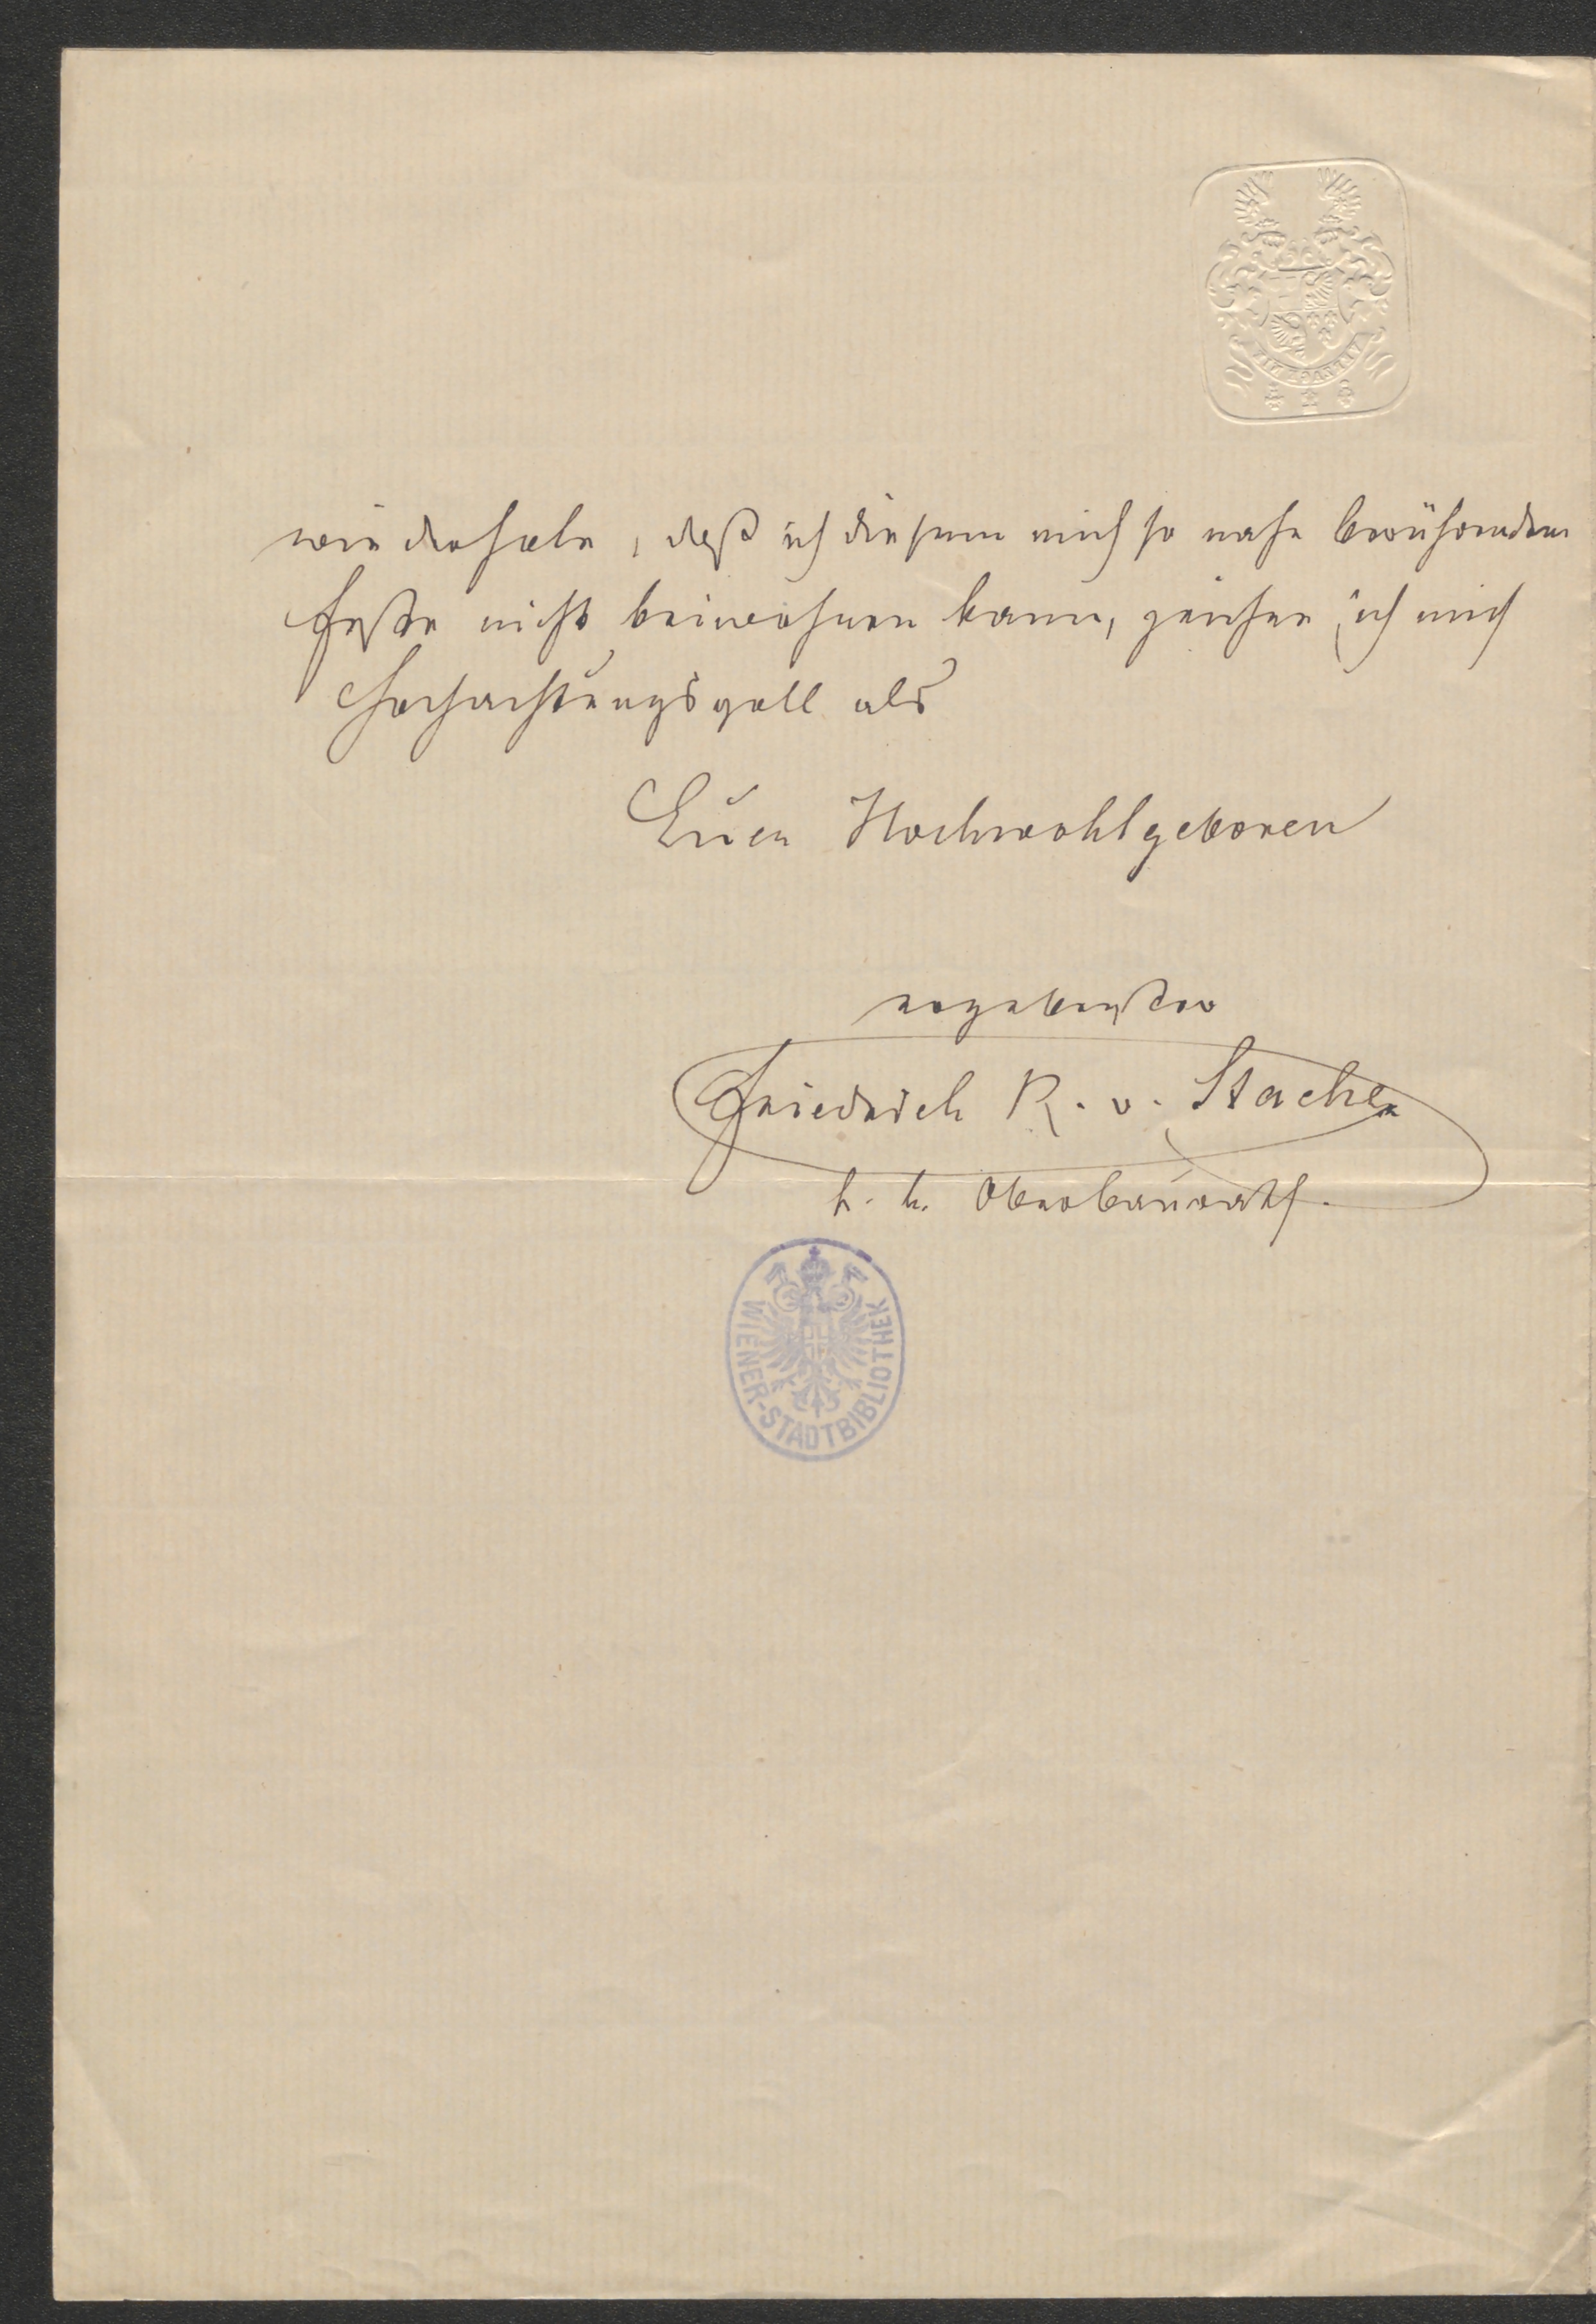 wiederhole, daß ich diesem mich so nahe berührenden
Feste nicht beiwohnen kann, zeichne ich mich
Hochachtungsvoll als
Euer Hochwohlgeboren
ergebenster
Friedrich R. v. Stache
k. k. Oberbaurath.
WIENER-STADTBIBLIOTHEK